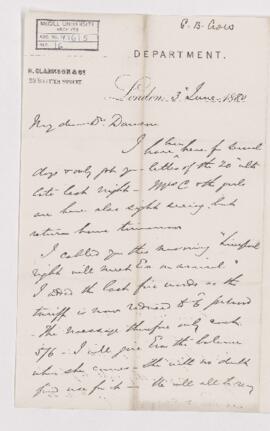 McGILL UNIVERSITY
ARCHIVES
ACC. NO. 1615
REF. 16
P. B. Cross
DEPARTMENT.
R. CLARKSON & Co
London 3 June 188
My dear Dr Dawson
I have been here for several
days & only got yr letter of the 20 ulto
late last night - Mrs C & the girls
are here also sight seeing but
return home tomorrow
I cabled you this morning "Liverpool
right will meet Eva on arrival"
I added the last five words as the
tariff is now reduced to 6d per word
- The message therefore only cost
5/6 - I will give Eva the balance
when she comes - She will no doubt
find use for it - We will all be very